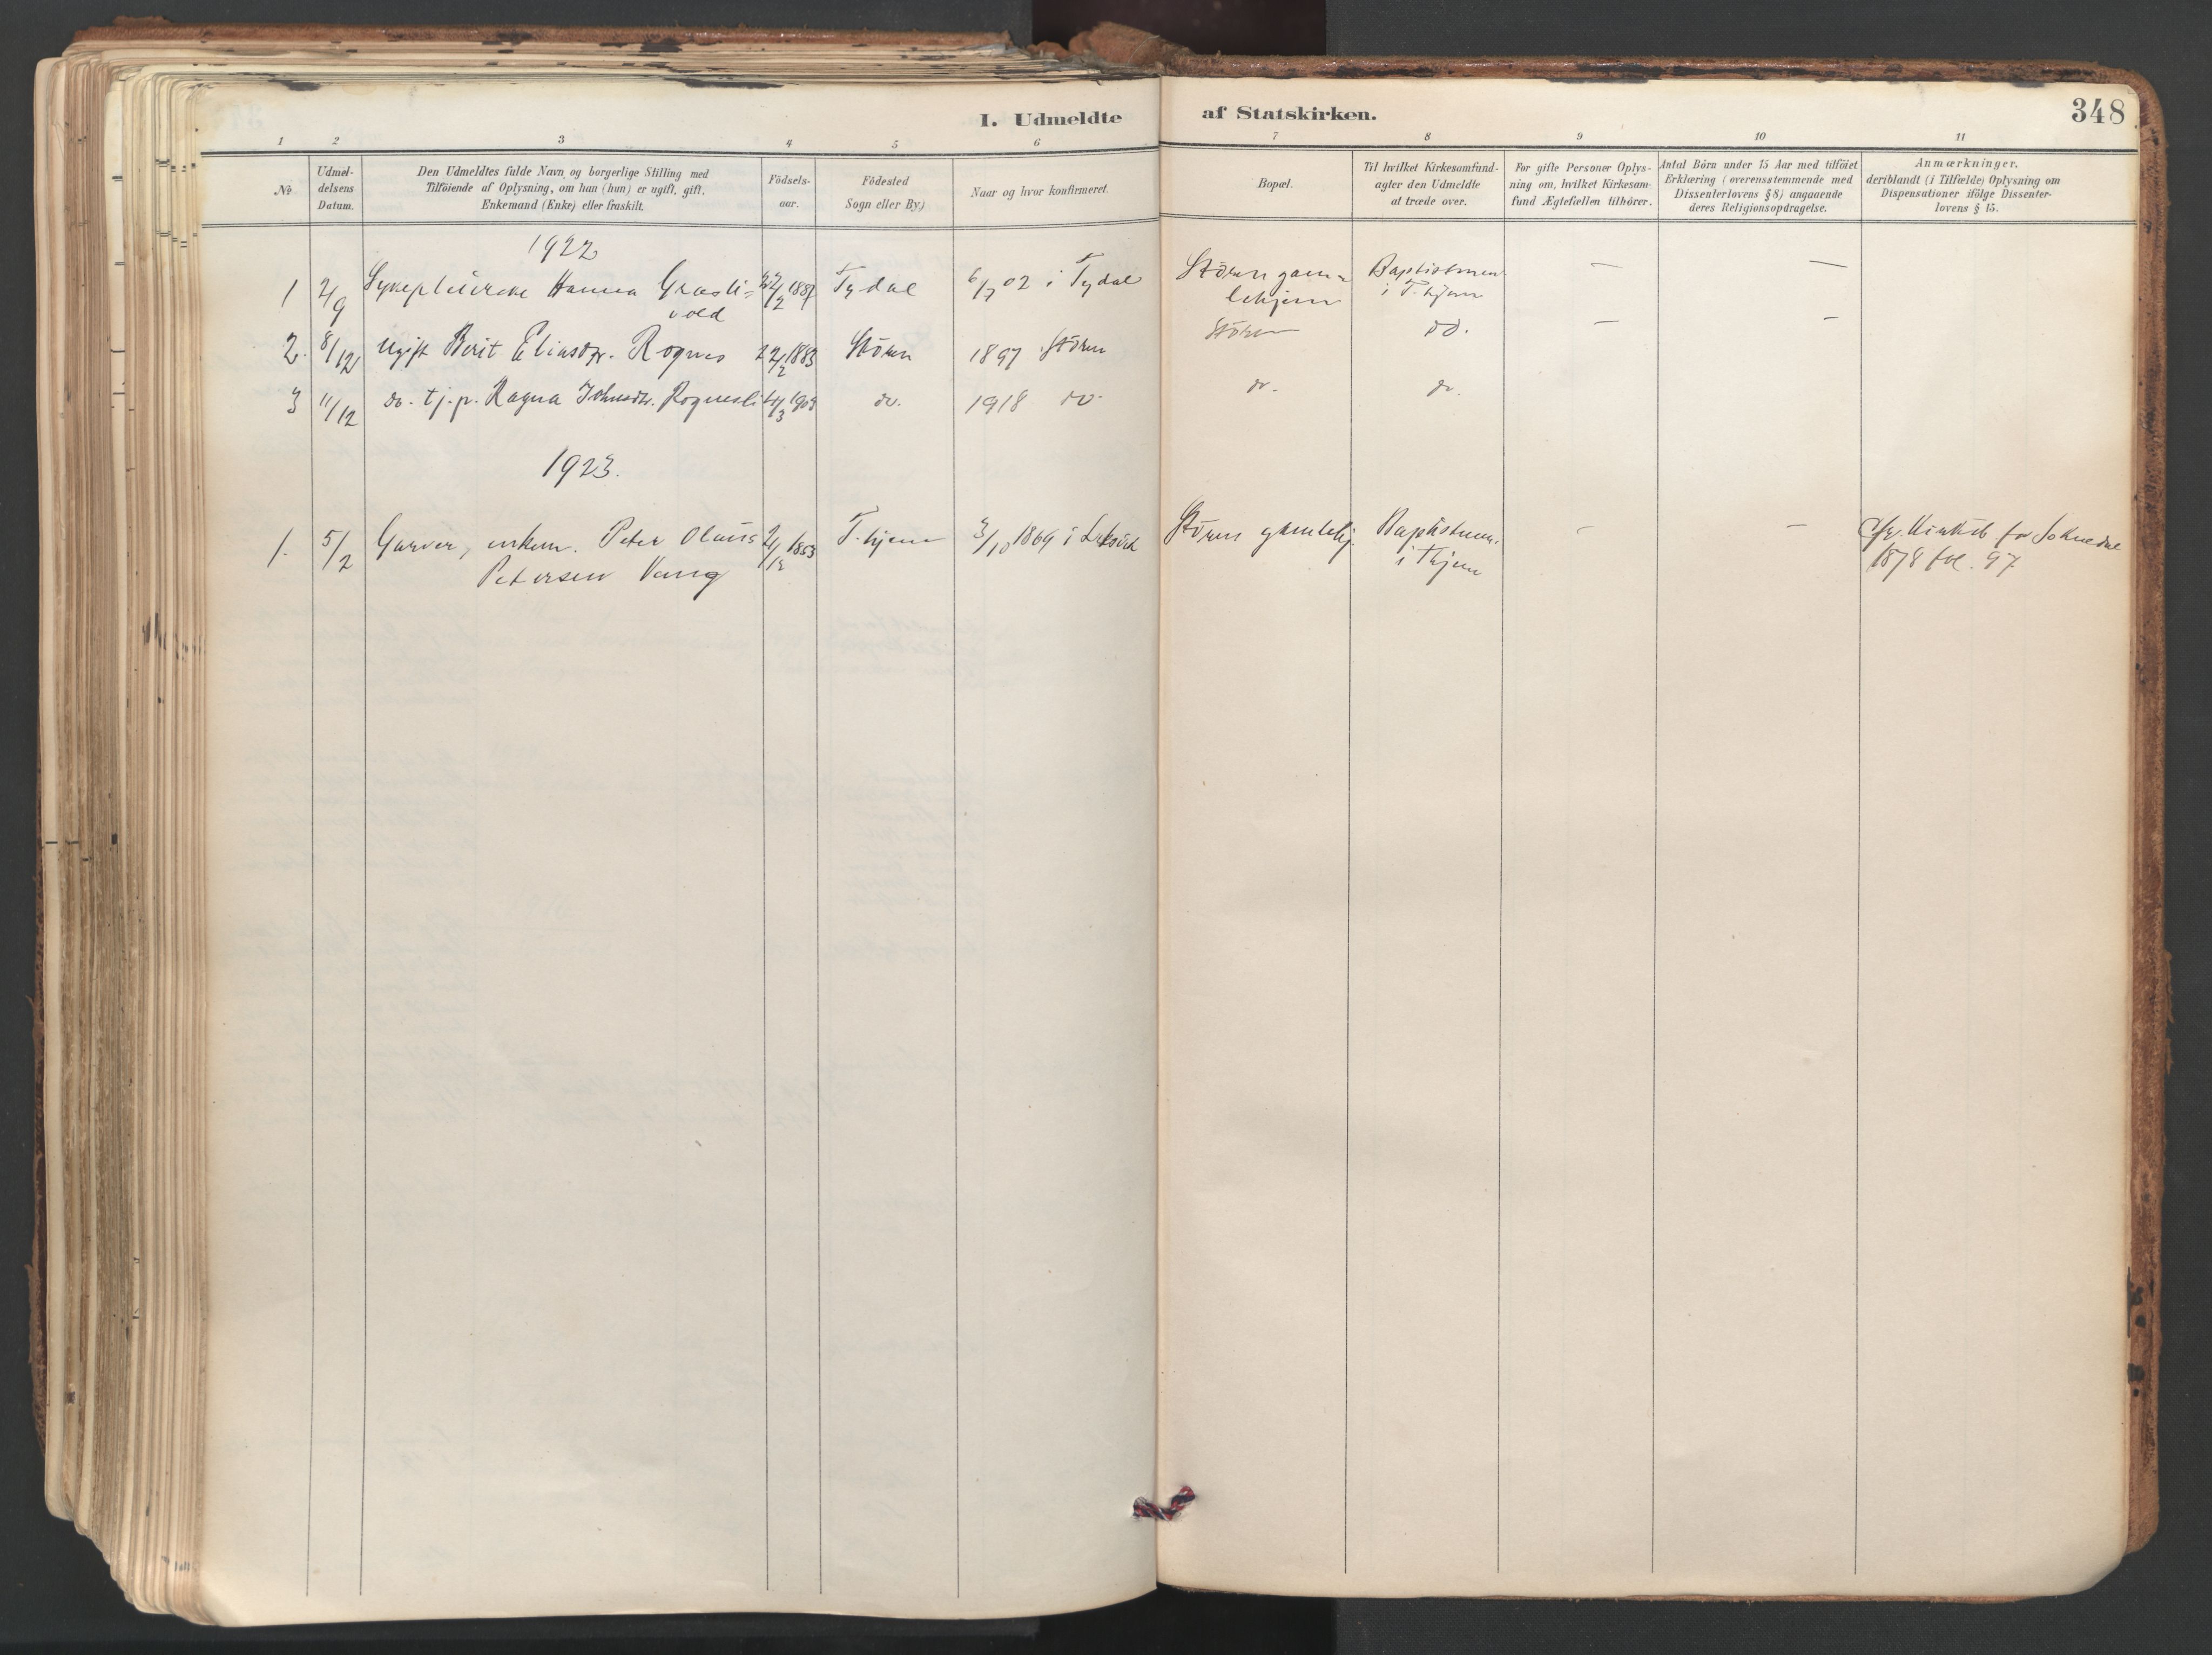 I. Udmeldte af Statskirken. 348
1 2 3 4 5 6 7 8 9 10 11
No
Udmel-
delsens
Datum.
Den Udmeldtes fulde Navn og borgerlige Stilling med
Tilföiende af Oplysning, om han (hun) er ugift, gift,
Enkemand (Enke) eller fraskilt.
Födsels-
aar.
Födested
Sogn eller By.)
Naar og hvor konfirmeret.
Bopæl.
Til hvilket Kirkesamfund-
agter den Udmeldte
at træde over.
For gifte Personer Oplys-
ning om, hvilket Kirkesam-
fund Ægtefællen tilhörer.
Antal Börn under 15 Aar med tilföiet
Erklæring (overensstemmende med
Dissenterlovens § 8) angaaende
deres Religionsopdragelse.
Anmærkninger.
deriblandt (i Tilfælde) Oplysning om
Dispensationer ifölge Dissenter-
lovens § 15.
1922
1 2/9 Sykepleierske Hanna Græsli= 22/2 1887 Tydal 6/7 02 i Tydal Stören gam= Baptistmen. — —
vold lehjem i T.hjem
2. 8/12 ugift Berit Eliasdtr. Rognes 22/2 1883 Stören 1897 Stören Stören do. — —
3 11/12 do. tj.p. Ragna Johnsdtr. Rognesli 4/3 1903 do. 1918 do. do. do.
1923.
1. 5/2 Garver, enkem. Peter Olaus 2/12 1853 T.hjem 3/10 1869 i Leksvik Störens gamlehj. Baptistmen. — — Cfr. Kirkeb. for Soknedal
Petersen Vang i Thjem 1878 fol. 97